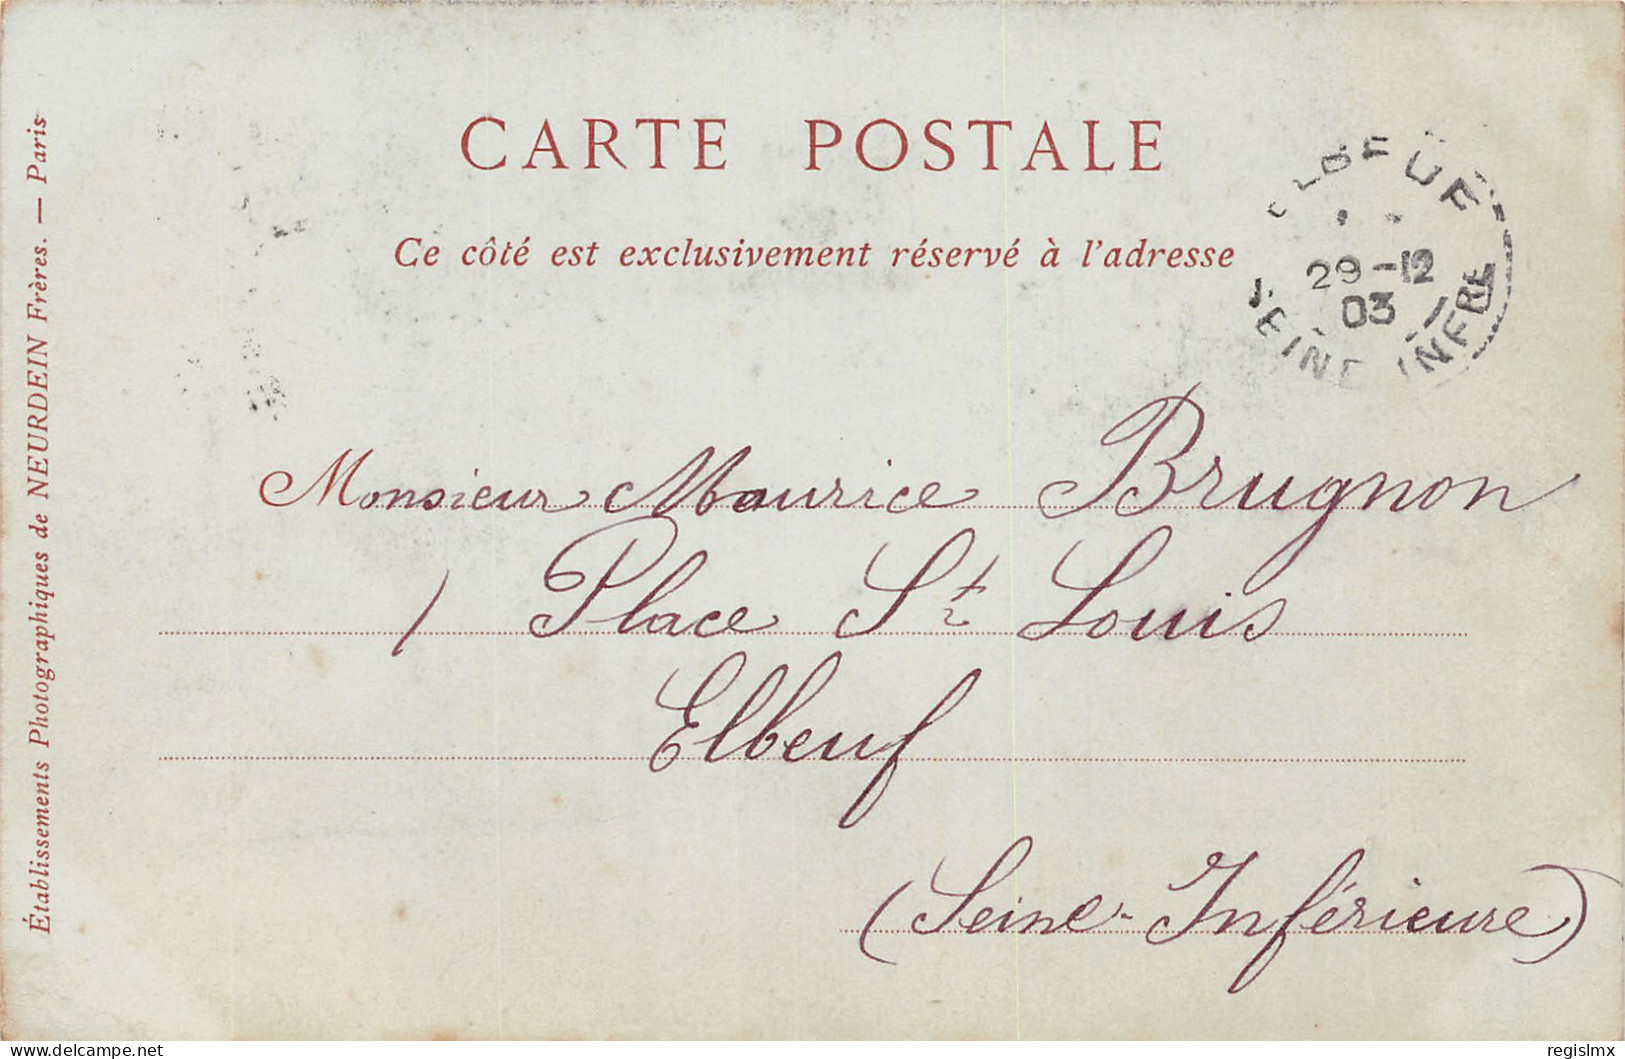 CARTE POSTALE
Ce côté est exclusivement réservé à l'adresse
29-12
03
SEINE INFRE
Monsieur Maurice Brugnon
1 Place St Louis
Elbeuf
(Seine-Inférieure)
Établissements Photographiques de NEURDEIN Frères. — Paris
www.delcampe.net
regislmx